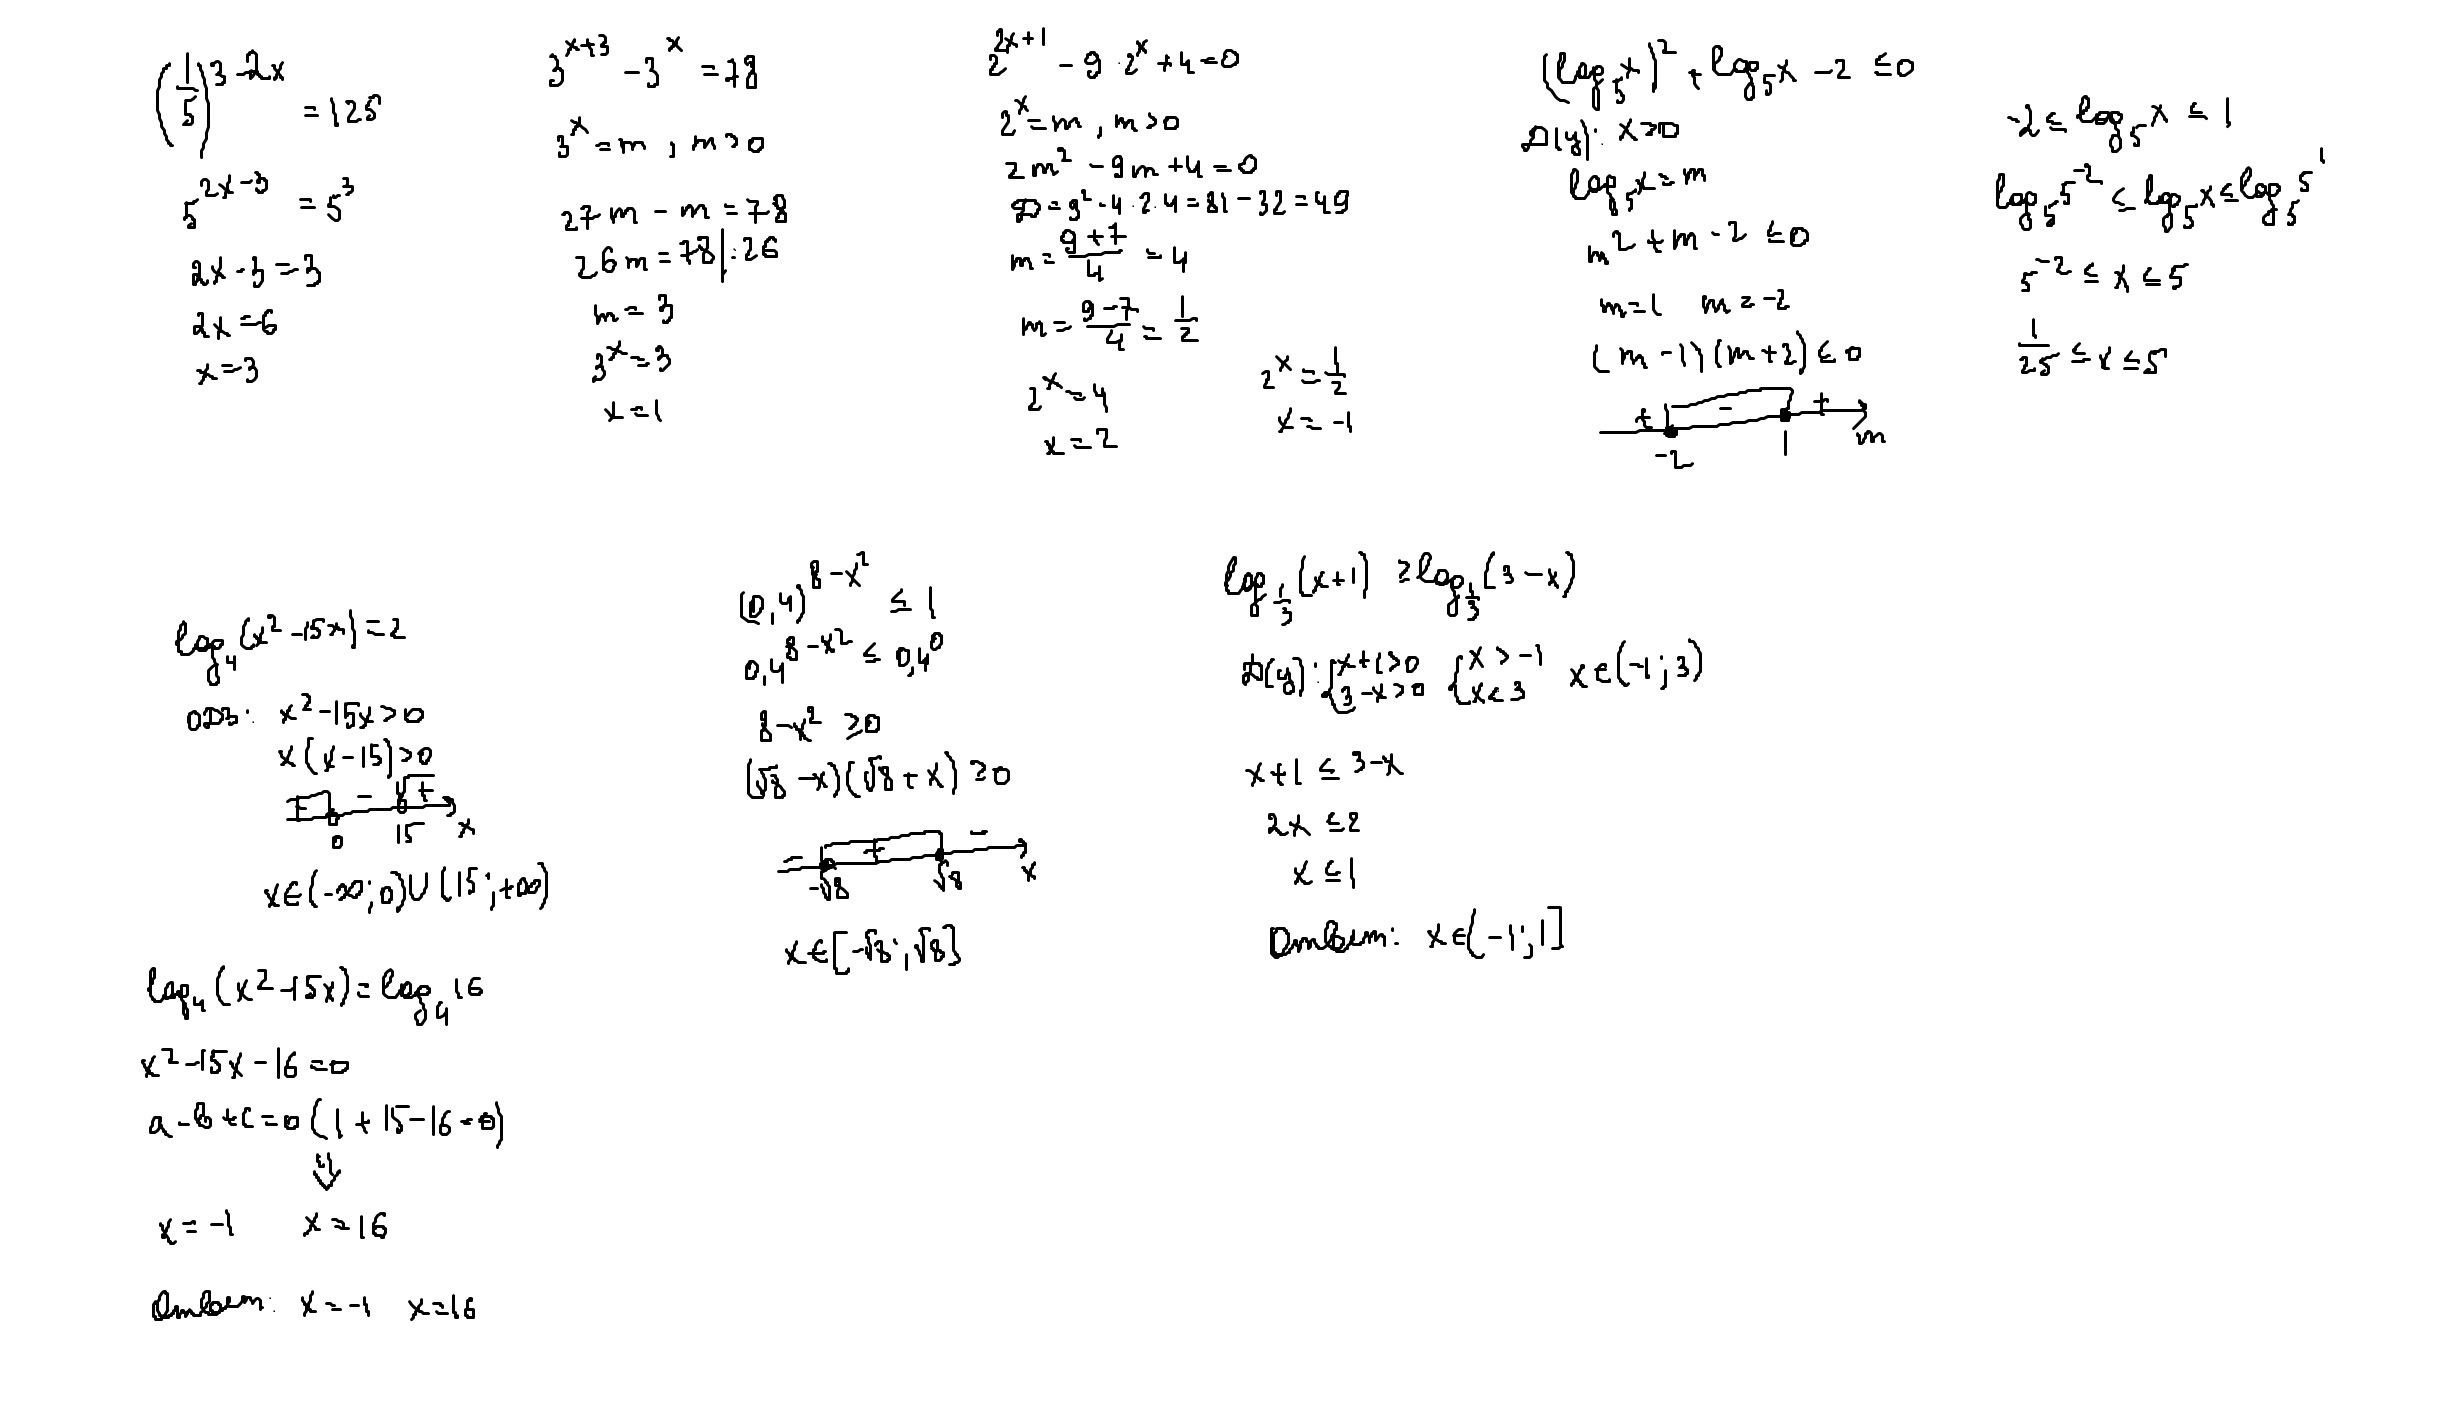 (1/5)^(3-2x) = 125
5^(2x-3) = 5^3
2x-3=3
2x=6
x=3
3^(x+3) - 3^x = 78
3^x = m, m>0
27m - m = 78
26m = 78 |:26
m = 3
3^x = 3
x = 1
2^(2x+1) - 9 · 2^x + 4 = 0
2^x = m, m>0
2m² - 9m + 4 = 0
D = 9² - 4·2·4 = 81 - 32 = 49
m = (9+7)/4 = 4
m = (9-7)/4 = 1/2
2^x = 4
x = 2
2^x = 1/2
x = -1
(log₅x)² + log₅x - 2 ≤ 0
D(y): x>0
log₅x = m
m² + m - 2 ≤ 0
m=1 m=-2
(m-1)(m+2) ≤ 0
+ - +
-2 1 m
-2 ≤ log₅x ≤ 1
log₅5^(-2) ≤ log₅x ≤ log₅5^1
5^(-2) ≤ x ≤ 5
1/25 ≤ x ≤ 5
log₄(x²-15x) = 2
ОДЗ: x²-15x>0
x(x-15)>0
+ - +
0 15 x
x∈(-∞;0)∪(15;+∞)
log₄(x²-15x) = log₄16
x²-15x-16=0
a-b+c=0 (1+15-16=0)
⇓
x=-1 x=16
Ответ: x=-1 x=16
(0,4)^(8-x²) ≤ 1
0,4^(8-x²) ≤ 0,4^0
8-x² ≥ 0
(√8-x)(√8+x) ≥ 0
- + -
-√8 √8 x
x∈[-√8;√8]
log_(1/3)(x+1) ≥ log_(1/3)(3-x)
D(y): {x+1>0 {x>-1 x∈(-1;3)
{3-x>0 {x<3
x+1 ≤ 3-x
2x ≤ 2
x ≤ 1
Ответ: x∈(-1;1]